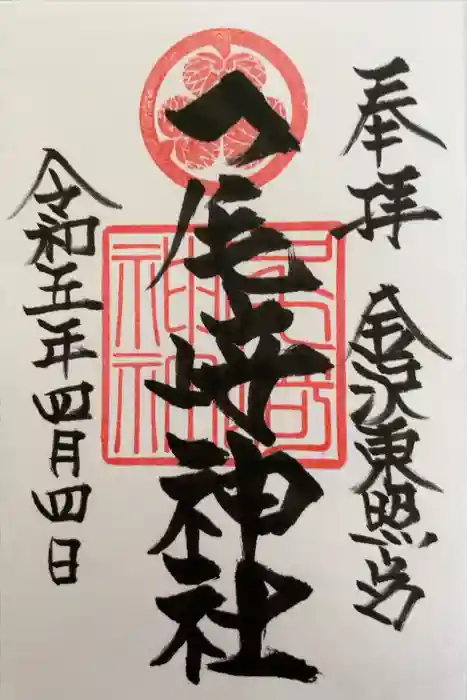 奉拝 金沢東照宮
尾崎神社
尾崎神社
令和五年四月四日